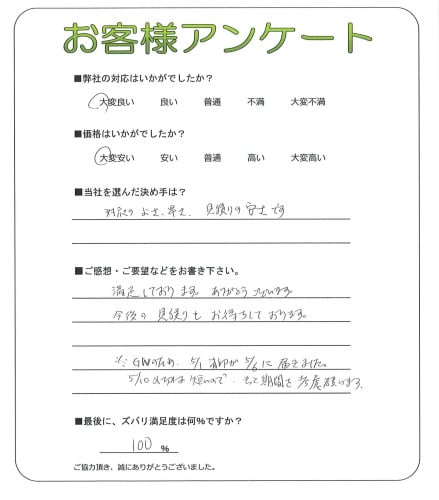 お客様アンケート
■弊社の対応はいかがでしたか？
大変良い 良い 普通 不満 大変不満
■価格はいかがでしたか？
大変安い 安い 普通 高い 大変高い
■当社を選んだ決め手は？
対応の よさ、早さ、見積りの 安さ です
■ご感想・ご要望などをお書き下さい。
満足しております。ありがとうございます。
今後の 見積りも お待ちしております。
※ GWのため、5/1 消印が 5/6 に 届きました。
5/10 は短いので 期間を 考慮頂けます
■最後に、ズバリ満足度は何％ですか？
100 ％
ご協力頂き、誠にありがとうございました。